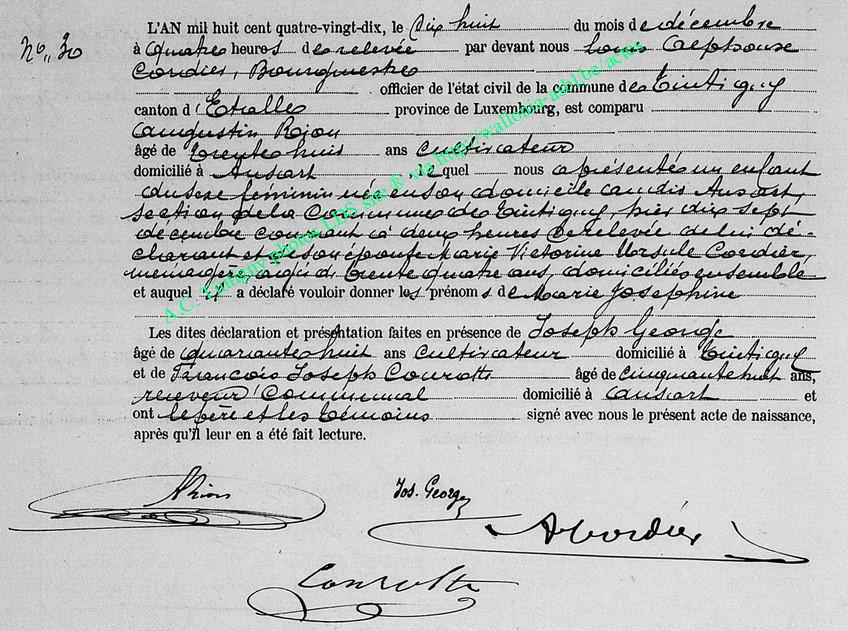 N° 30
L'AN mil huit cent quatre-vingt-dix, le dix huit du mois de décembre
à quatre heures de relevée par devant nous Louis Alphonse
Cordier, Bourgmestre
officier de l'état civil de la commune de Tintigny
canton d'Etalle province de Luxembourg, est comparu
Augustin Rion
âgé de trente huit ans cultivateur
domicilié à Ansart lequel nous a présenté un enfant
du sexe féminin née en son domicile audit Ansart,
section de la Commune de Tintigny, hier dix sept
décembre courant à deux heures de relevée de lui dé-
clarant et de son épouse Marie Victorine Ursule Cordier,
ménagère, âgée de trente quatre ans, domiciliés ensemble
et auquel il a déclaré vouloir donner les prénoms de Marie Joséphine
Les dites déclaration et présentation faites en présence de Joseph George
âgé de quarante huit ans cultivateur domicilié à Tintigny
et de François Joseph Courotte âgé de cinquante huit ans,
receveur communal domicilié à Ansart et
ont le père et les témoins signé avec nous le présent acte de naissance,
après qu'il leur en a été fait lecture.
ARion Jos. George
ACordier
Courotte
A.C. Tintigny photos LDS site & via http://wallonia-asbl.be/actes